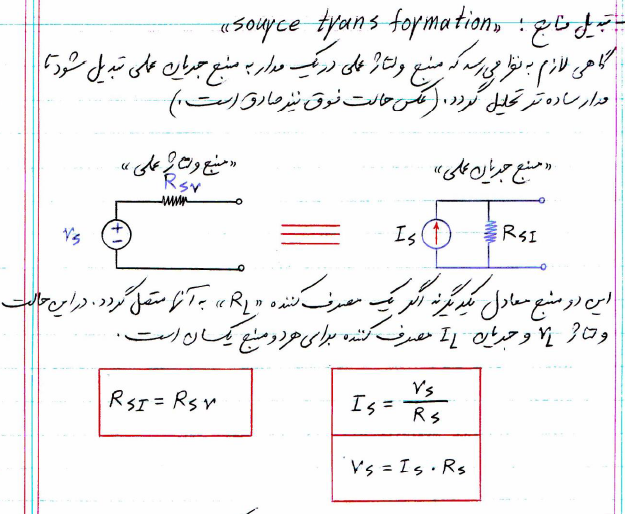 - تبدیل منابع : «source transformation»
گاهی لازم به نظر می‌رسد که منبع ولتاژ عملی در یک مدار به منبع جریان عملی تبدیل شود تا
مدار ساده تر تحلیل گردد. (عکس حالت فوق نیز صادق است.)
«منبع ولتاژ عملی»
«منبع جریان عملی»
RSV
VS
IS
RSI
این دو منبع معادل یکدیگرند اگر یک مصرف کننده «RL» به آنها متصل گردد. در این حالت
ولتاژ VL و جریان IL مصرف کننده برای هر دو منبع یکسان است.
RSI = RSV
IS = VS / RS
VS = IS . RS